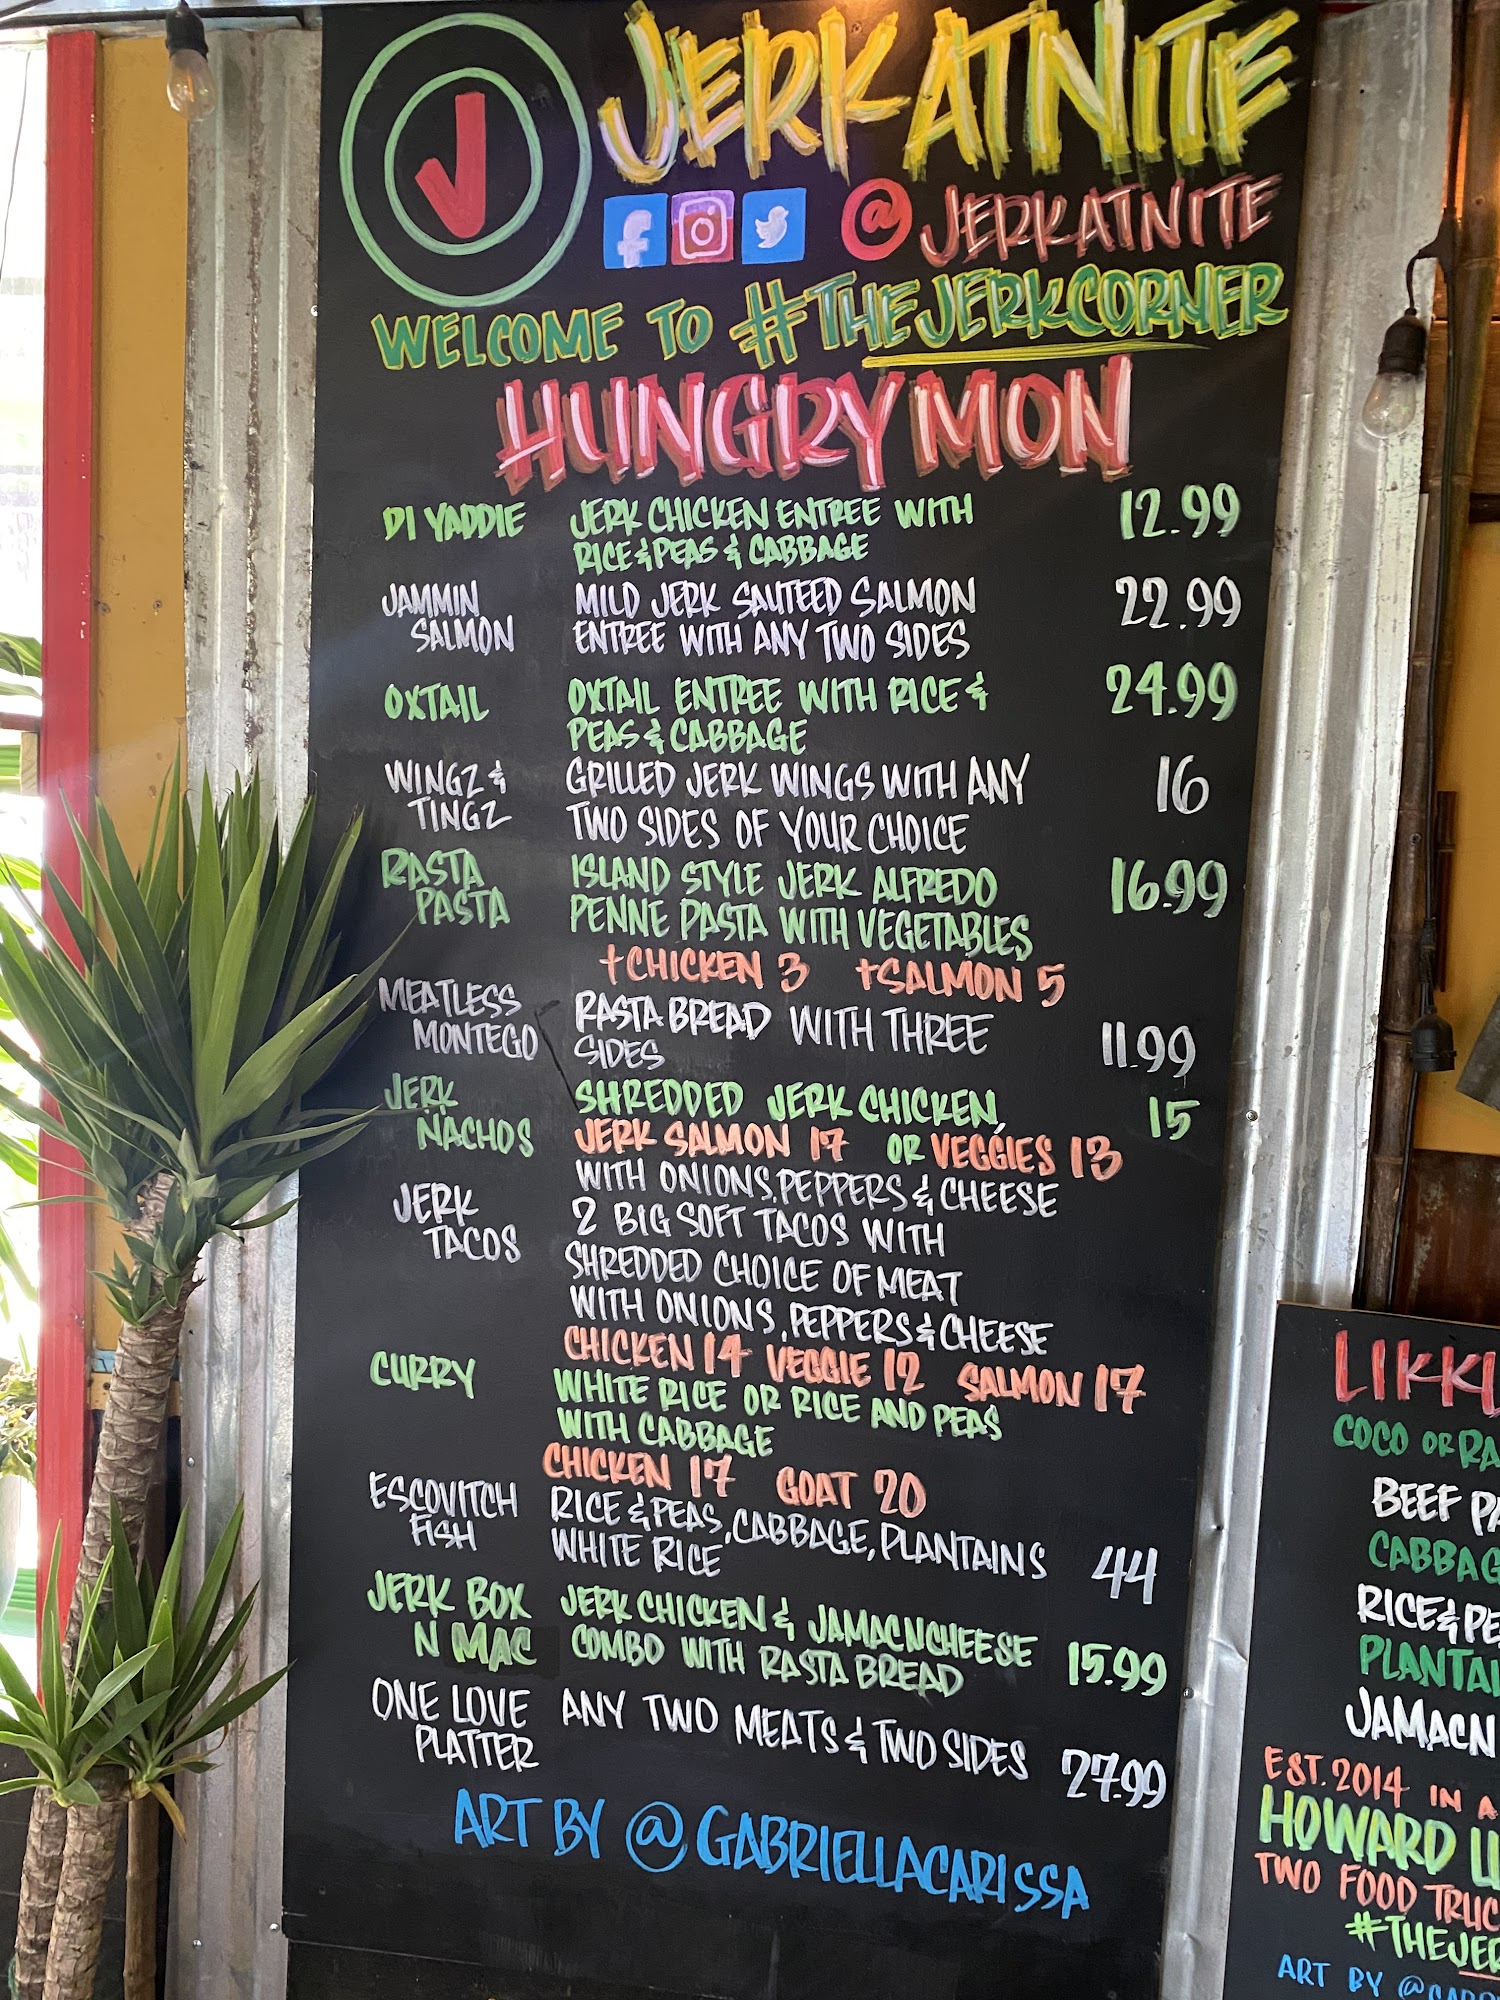 J
JERKATNITE
@JERKATNITE
WELCOME TO #THEJERKCORNER
HUNGRY MON
DI YADDIE JERK CHICKEN ENTREE WITH 12.99
RICE & PEAS & CABBAGE
JAMMIN MILD JERK SAUTEED SALMON 22.99
SALMON ENTREE WITH ANY TWO SIDES
OXTAIL OXTAIL ENTREE WITH RICE & 24.99
PEAS & CABBAGE
WINGZ & GRILLED JERK WINGS WITH ANY 16
TINGZ TWO SIDES OF YOUR CHOICE
RASTA ISLAND STYLE JERK ALFREDO 16.99
PASTA PENNE PASTA WITH VEGETABLES
+CHICKEN 3 +SALMON 5
MEATLESS RASTA BREAD WITH THREE 11.99
MONTEGO SIDES
JERK SHREDDED JERK CHICKEN, 15
NACHOS JERK SALMON 17 OR VEGGIES 13
WITH ONIONS, PEPPERS & CHEESE
JERK 2 BIG SOFT TACOS WITH
TACOS SHREDDED CHOICE OF MEAT
WITH ONIONS, PEPPERS & CHEESE
CHICKEN 14 VEGGIE 12 SALMON 17
CURRY WHITE RICE OR RICE AND PEAS
WITH CABBAGE
CHICKEN 17 GOAT 20
ESCOVITCH RICE & PEAS, CABBAGE, PLANTAINS 44
FISH WHITE RICE
JERK BOX JERK CHICKEN & JAMACNCHEESE 15.99
N MAC COMBO WITH RASTA BREAD
ONE LOVE ANY TWO MEATS & TWO SIDES 27.99
PLATTER
ART BY @GABRIELLACARISSA
LIKK
COCO OR RA
BEEF PA
CABBAG
RICE & PE
PLANTAI
JAMACN
EST. 2014 IN A
HOWARD U
TWO FOOD TRUC
#THEJER
ART BY @GABR